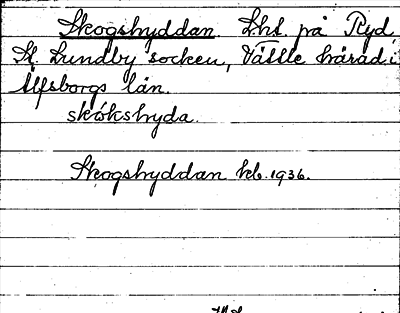 Skogshyddan. Lht. på Ryd,
St. Lundby socken, Vättle härad i
Älfsborgs län.
skókshyda.
Skogshyddan kb. 1936.